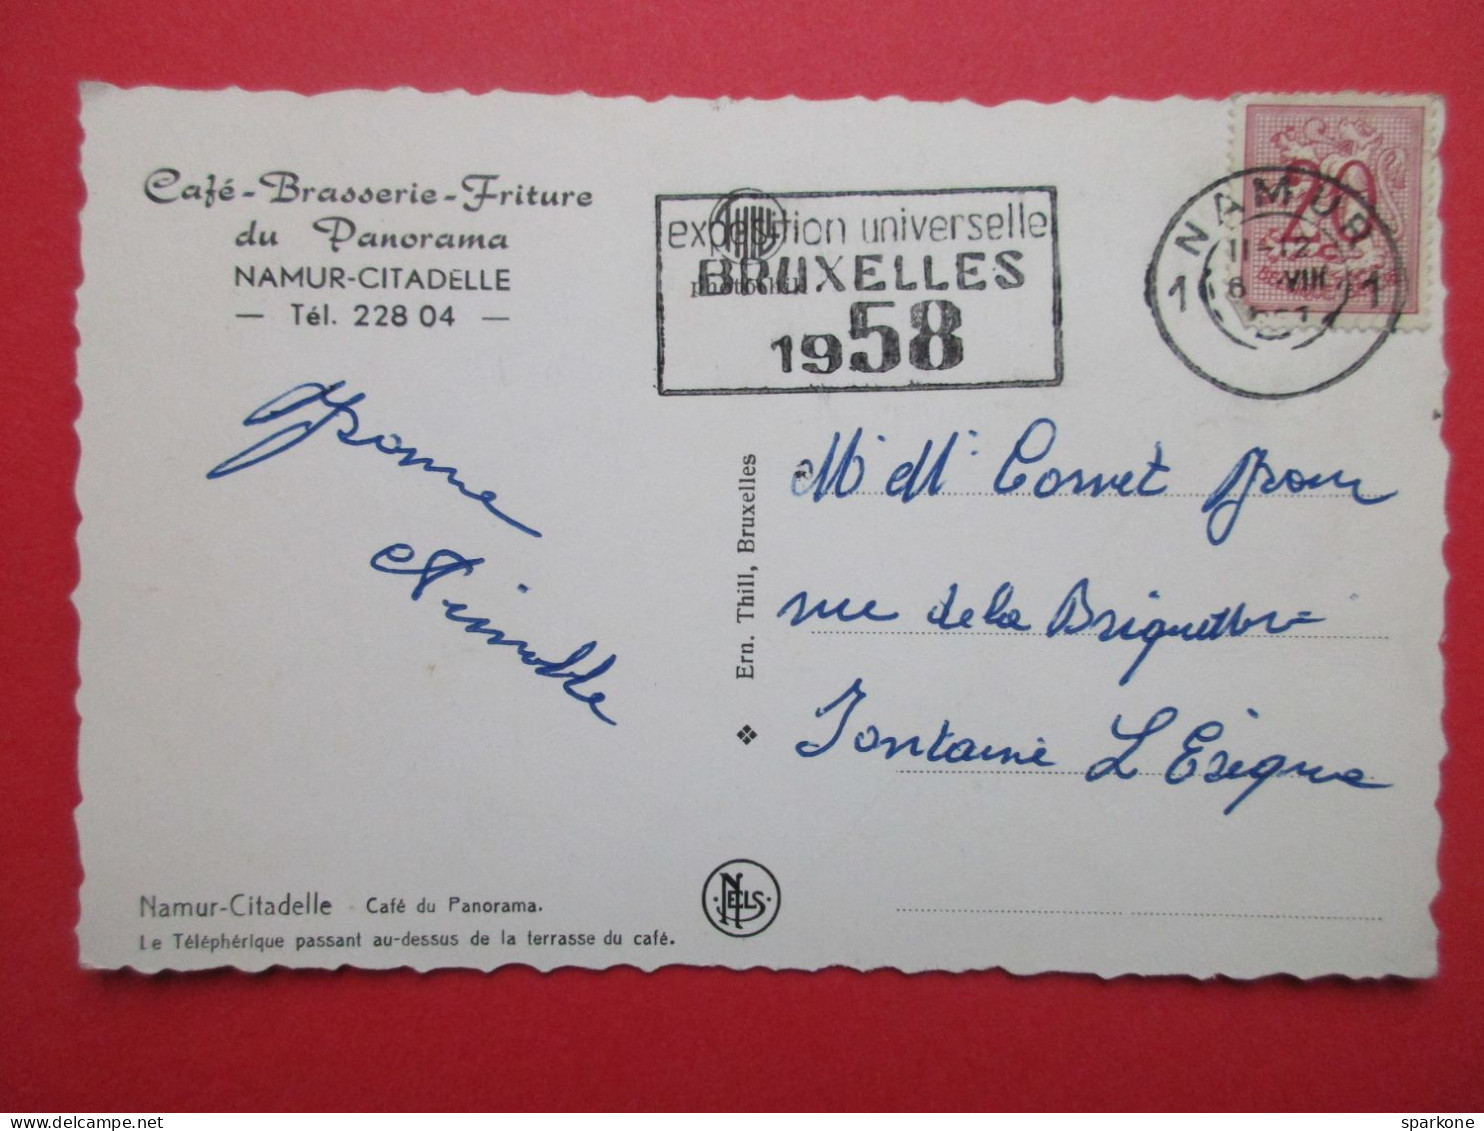 Café-Brasserie-Friture
du Panorama
NAMUR-CITADELLE
— Tél. 228 04 —
exposition universelle
BRUXELLES
1958
NAMUR
11-12
6 VIII
1 1
20
Yvonne
M M Cornet
rue de la
Fontaine L'Evêque
Ern. Thill, Bruxelles
NELS
Namur-Citadelle Café du Panorama.
Le Téléphérique passant au-dessus de la terrasse du café.
sparkone
delcampe.net